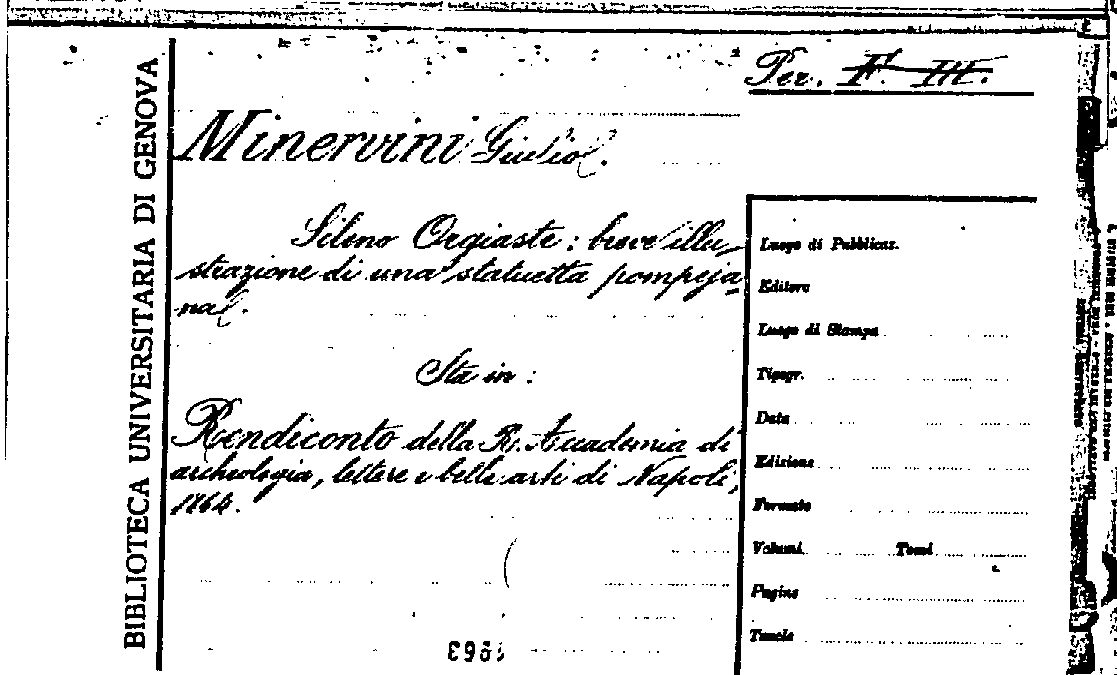 BIBLIOTECA UNIVERSITARIA DI GENOVA
Per. F. III.
Minervini Giulio.
Sileno Orgiaste: breve illu-
strazione di una statuetta pompeja-
na.
Sta in:
Rendiconto della R. Accademia di
archeologia, lettere e belle arti di Napoli,
1864.
Luogo di Pubblicaz.
Editore
Luogo di Stampa
Tipogr.
Data
Edizione
Formato
Volumi Tomi
Pagine
Tavole